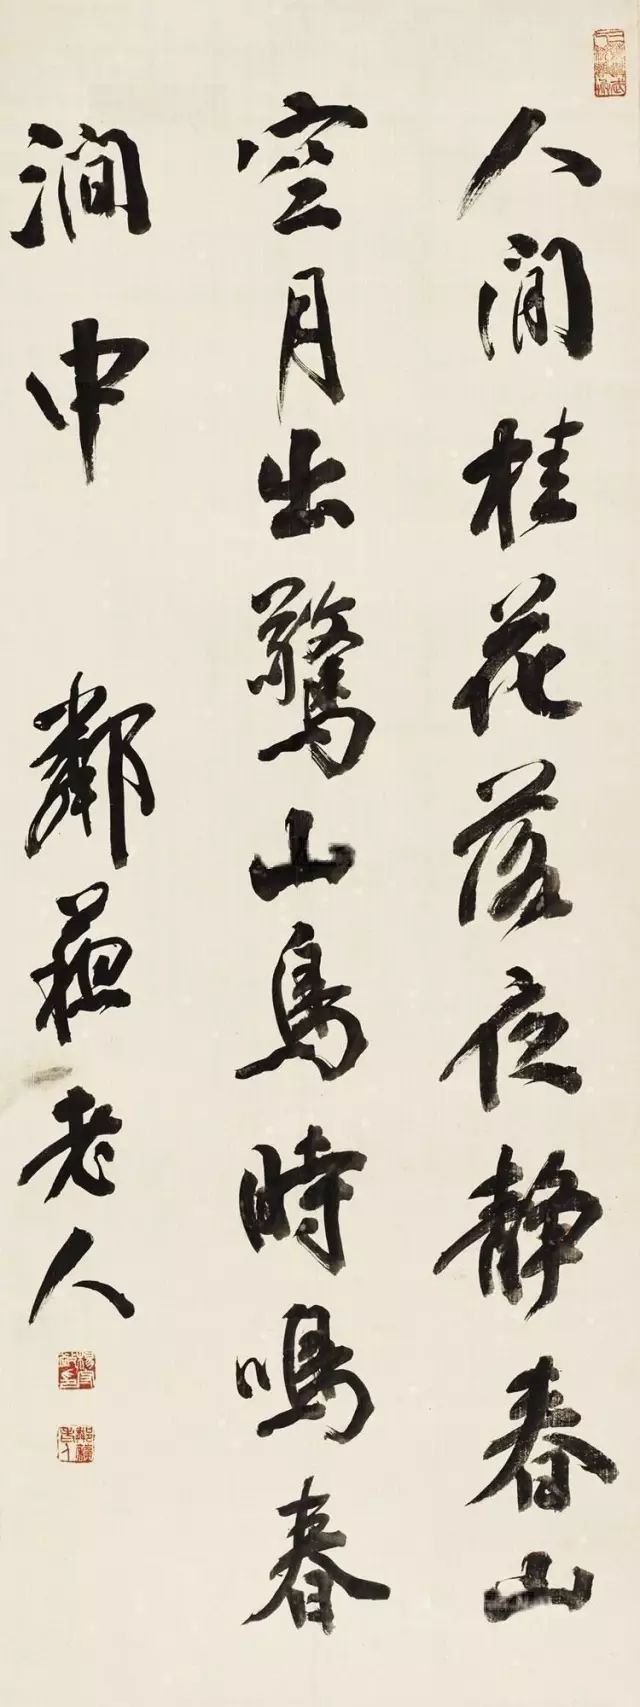 人間桂花落夜静春山
空月出驚山鳥時鳴春
澗中　鄰蘓老人